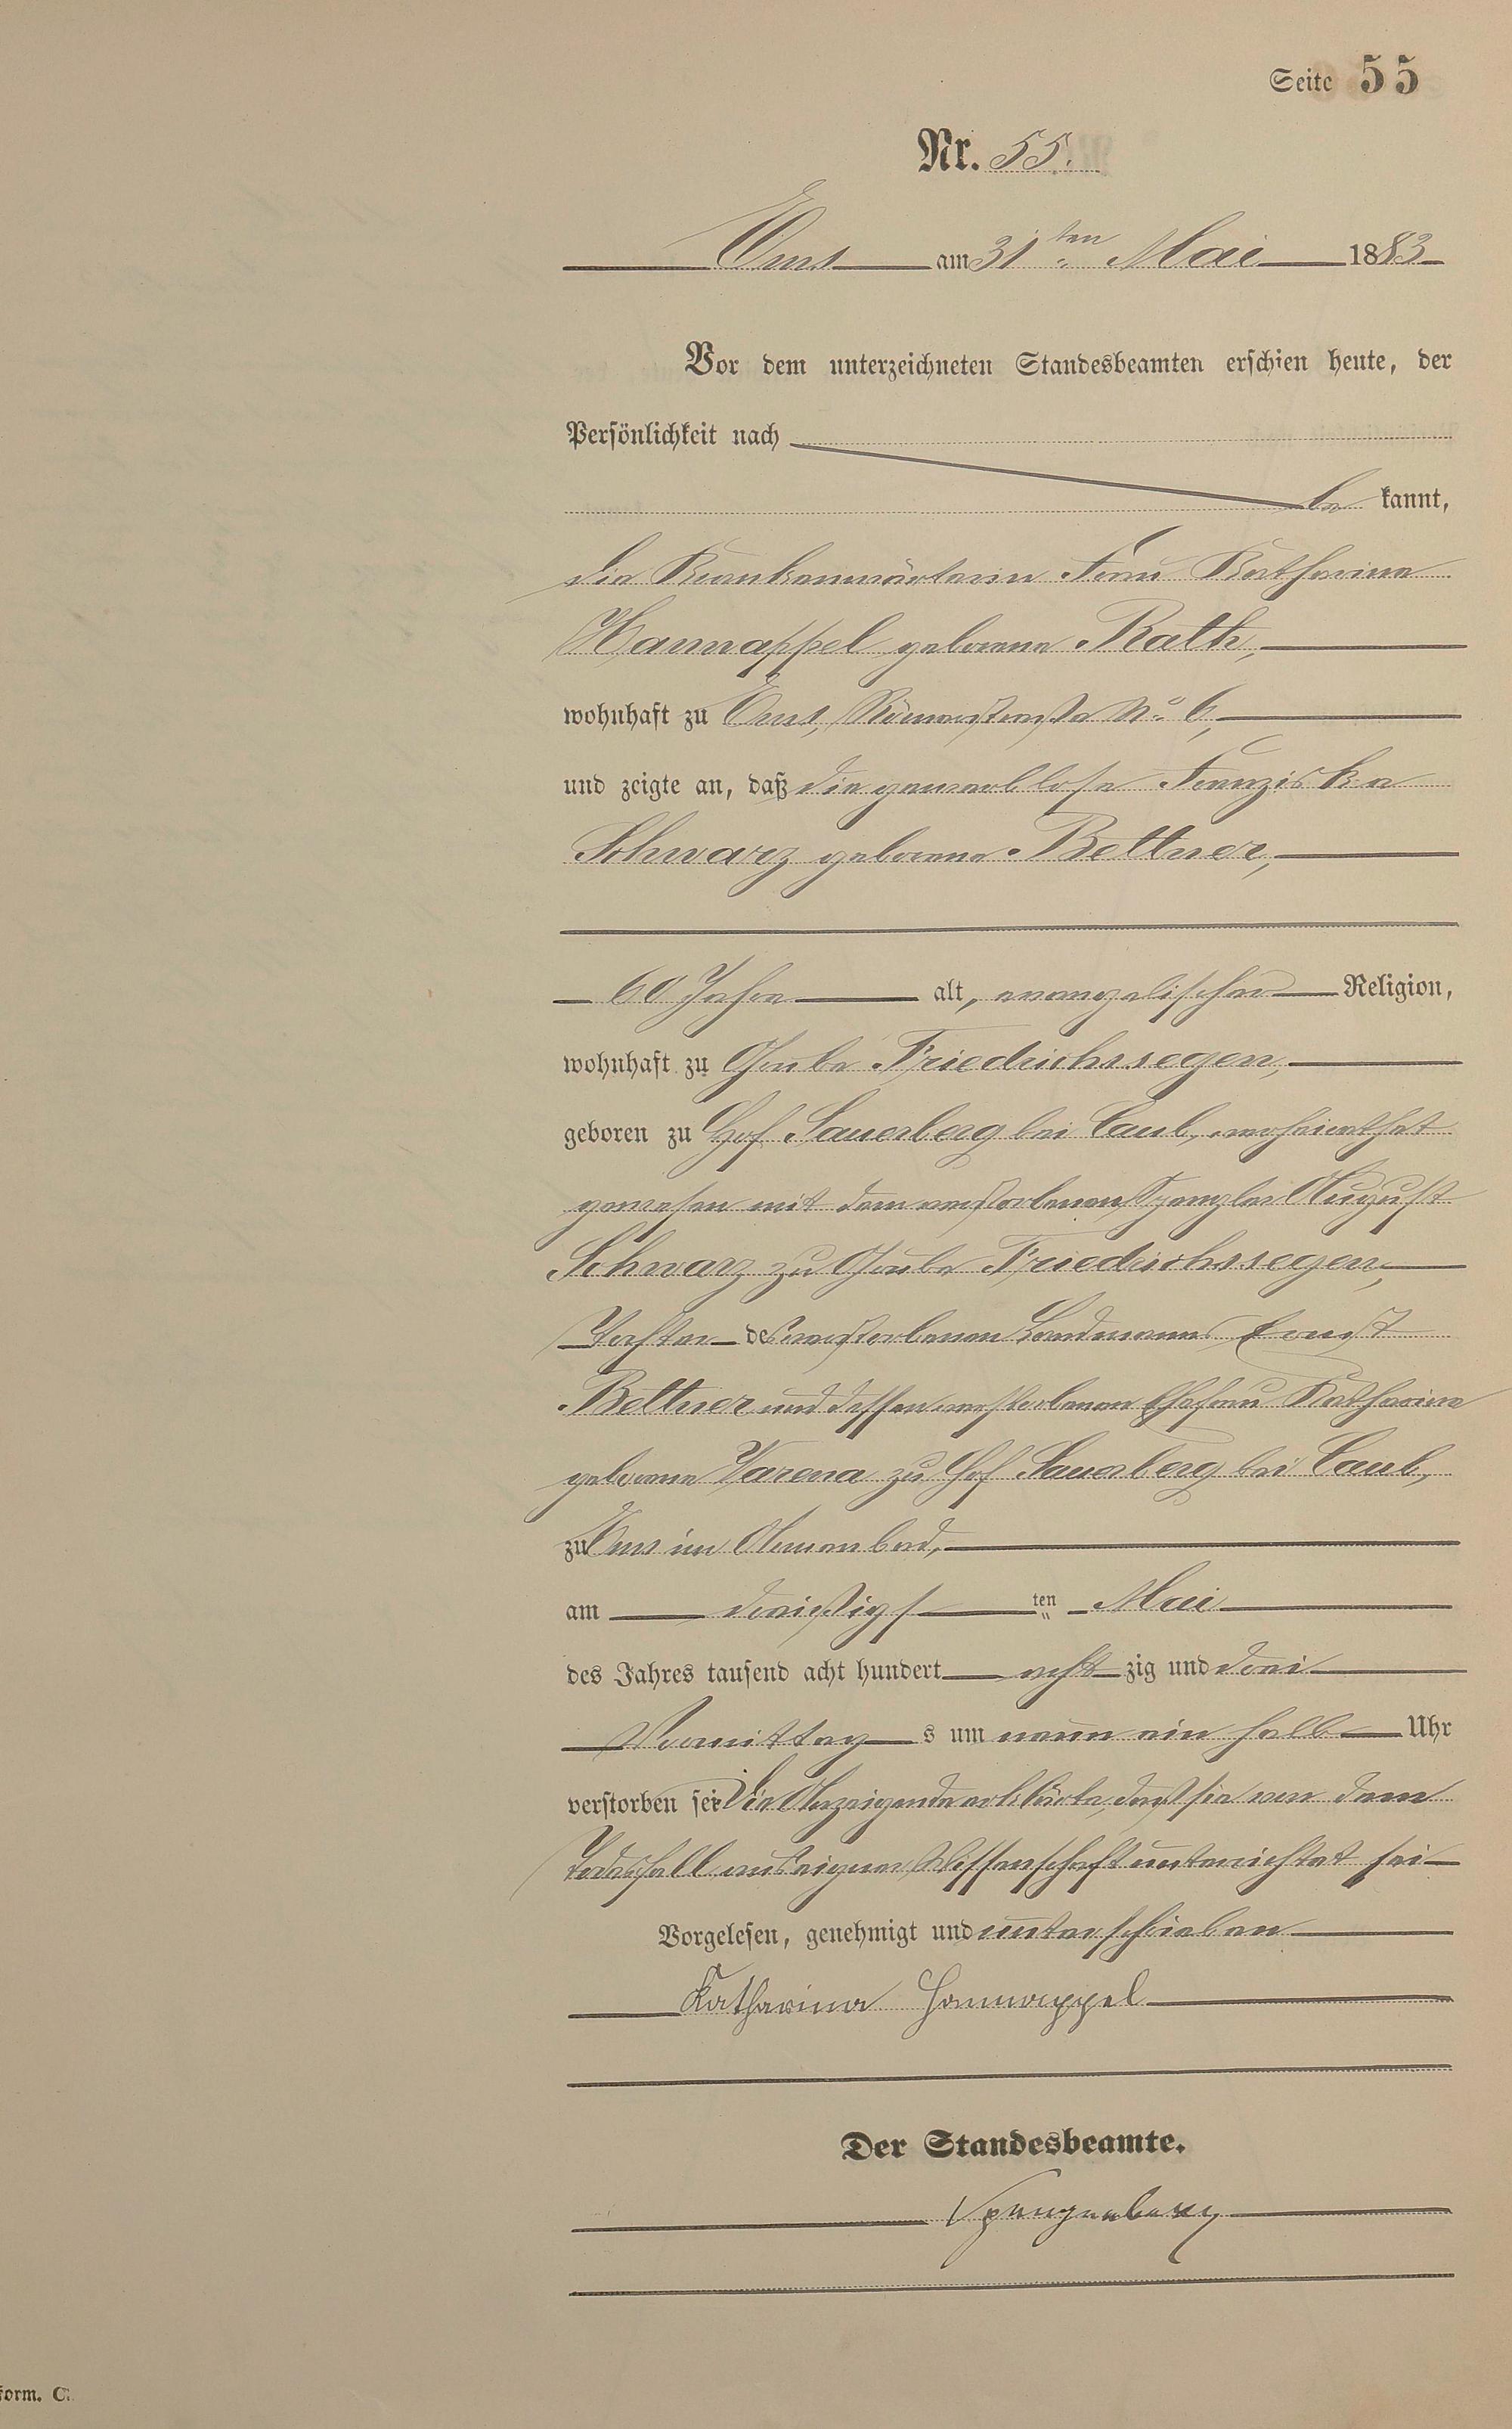 Seite 55
Nr. 55.
Ems am 31ten Mai 1883
Vor dem unterzeichneten Standesbeamten erschien heute, der
Persönlichkeit nach
be kannt,
die Krankenwärterin Frau Katharina
Hannappel geborene Rath,
wohnhaft zu Ems, Römerstraße No 6,
und zeigte an, daß die gewerblose Franziska
Schwarz geborene Bettner,
60 Jahre alt, evangelischer Religion,
wohnhaft zu Grube Friedrichssegen,
geboren zu Hof Sauerberg bei Caub, verheirathet
gewesen mit dem verstorbenen Spengler August
Schwarz zu Grube Friedrichssegen,
Tochter des verstorbenen Landmanns Ernst
Bettner und dessen verstorbenen Ehefrau Katharina
geborene Varena zu Hof Sauerberg bei Caub,
zu Ems im Armenbad,
am dreißigsten Mai
des Jahres tausend acht hundert acht zig und drei
Vormittag s um neun ein halb Uhr
verstorben sei. Die Anzeigende erklärte, daß sie von dem
Todesfall aus eigner Wissenschaft unterrichtet sei
Vorgelesen, genehmigt und unterschrieben
Katharina Hannappel
Der Standesbeamte.
Spangenberg
form. C.